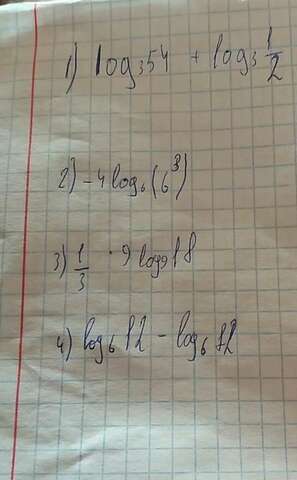 1) log₃54 + log₃ 1/2
2) -4 log₆(6³)
3) 1/3 · 9 log₉18
4) log₆12 - log₆72